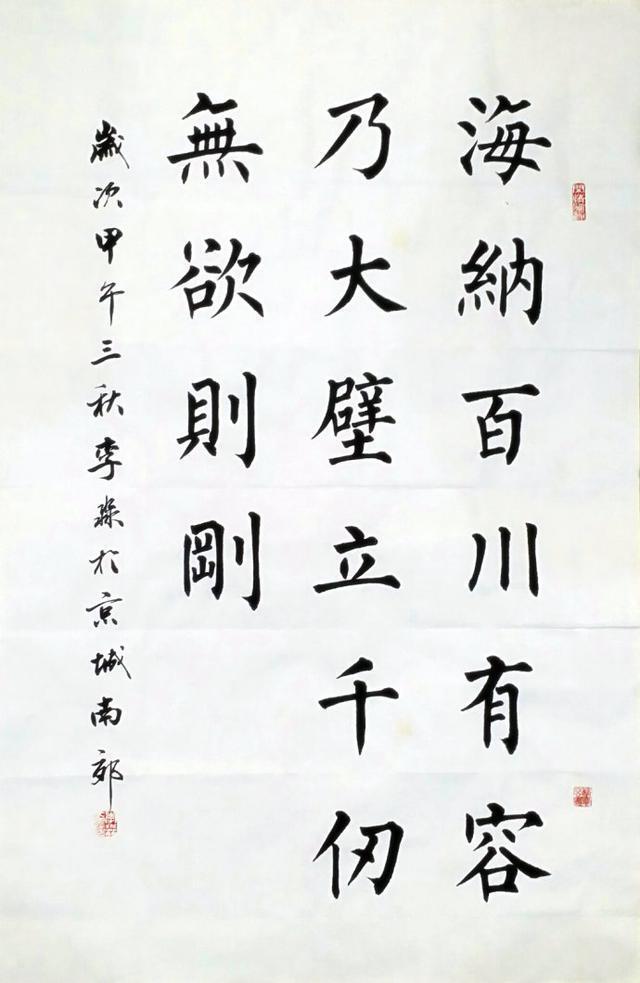 海納百川有容
乃大壁立千仞
無欲則剛
歲次甲午三秋李淼於京城南郊